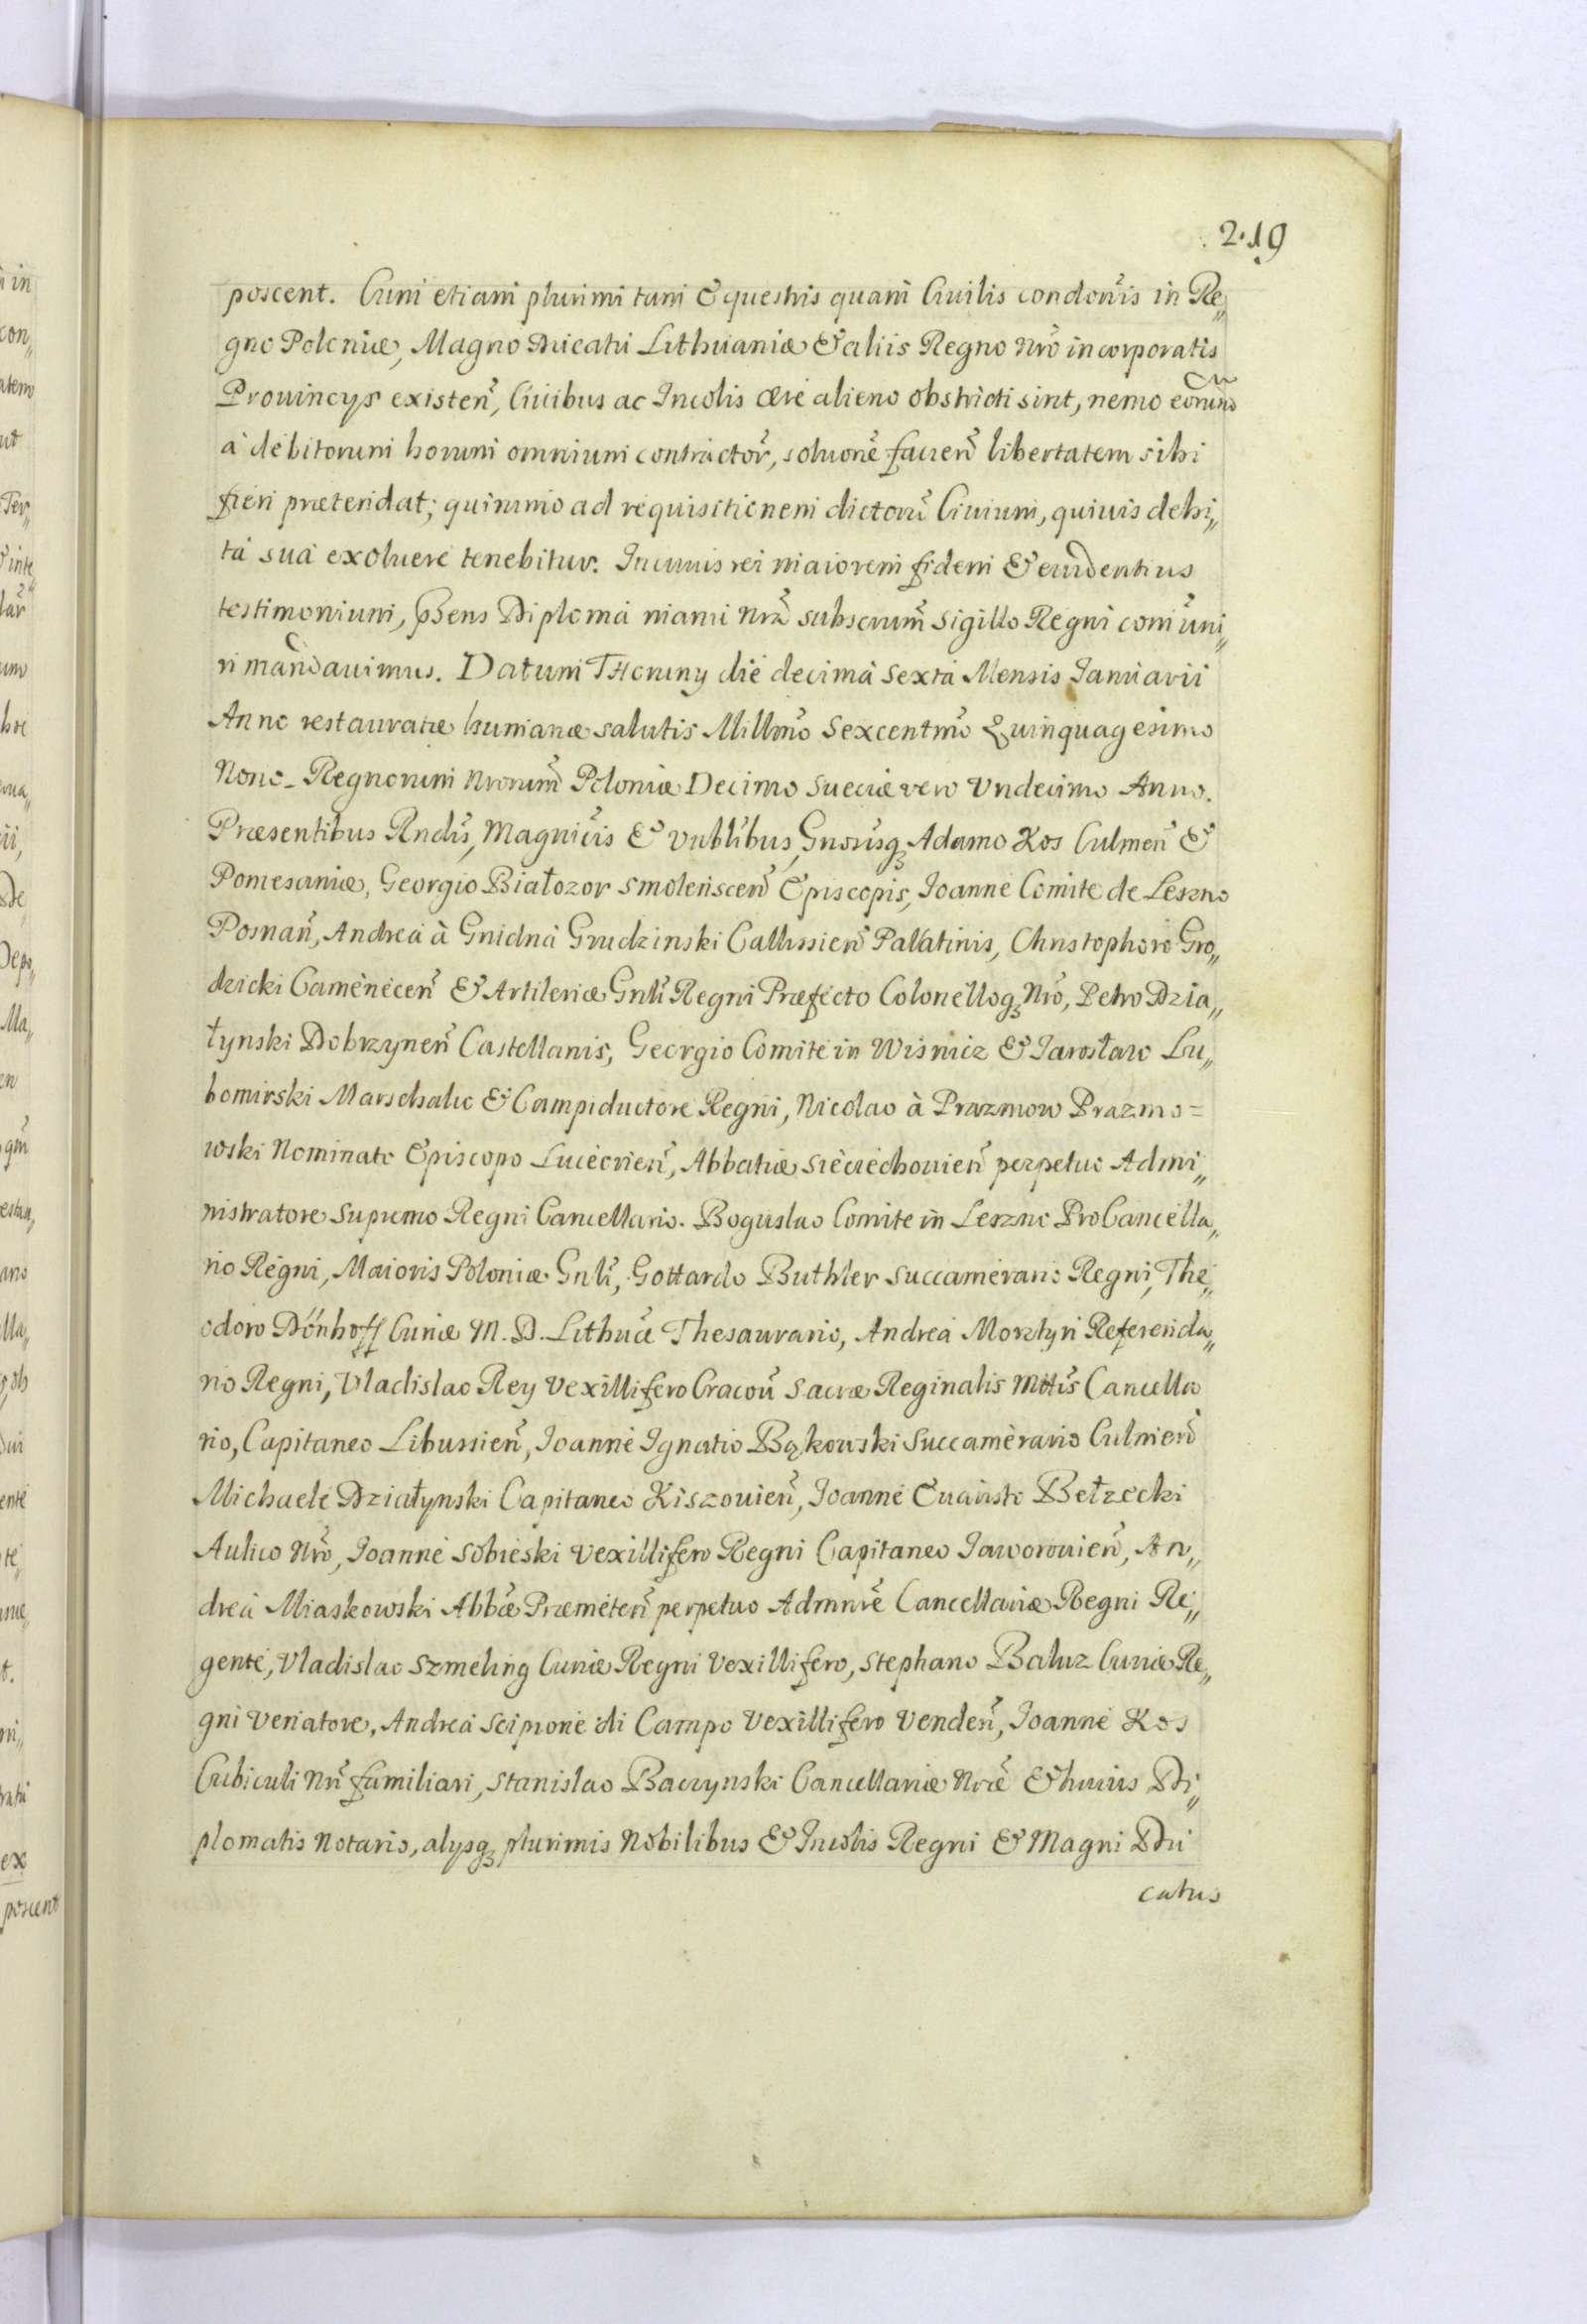 2.19
poscent. Cum etiam plurimi tam Equestris quam Civilis condonĩs in Re„
gno Poloniæ, Magno Ducatu Lithuaniæ & aliis Regno Nrõ incorporatis
Provincys existeñ, Civibus ac Incolis ære alieno obstricti sint, nemo eorum
à debitorum horum omnium contractoř, solvonẽ facieñ libertatem sibi
fieri prætendat; quinimo ad requisitionem dictorũ Civium, quivis debi„
ta sua exolvere tenebitur. In cuius rei maiorem fidem & evidentius
testimonium, Pñens Diploma manu Nrã subscrum̃ Sigillo Regni com̃uni„
ri mandavimus. Datum THoruny die decima Sexta Mensis Januarii
Anno restauratæ humanæ salutis Millm̃o Sexcentm̃o Quinquagesimo
Nono_ Regnorum Nrorum̃ Poloniæ Decimo Sueciæ vero Undecimo Anno.
Præsentibus Rndĩs, Magnicĩs & Vnblĩbus, Gnorĩsq Adamo Kos Culmeñ &
Pomesaniæ, Georgio Białozor Smolenisceñ Episcopis, Joanne Comite de Leszno
Posnañ, Andrea à Gnidna Grudzinski Callissieñ Palatinis, Christophoro Gro„
dzicki Cameneceñ & Artileriæ Gnlĩ Regni Præfecto Colonelloq Nrõ, Petro Dzia„
łynski Dobrzyneñ Castellanis, Georgio Comite in Wisnicz & Jarosław Lu„
bomirski Marschalio & Campiductore Regni, Nicolao à Prazmow Prazmo=
wski Nominato Episcopo Luceorieñ, Abbatiæ Sieciechovieñ perpetuo Admi„
nistratore Supremo Regni Cancellario. Boguslao Comite in Leszno ProCancella„
rio Regni, Maioris Poloniæ Gnlĩ, Gottardo Buthler Succamerario Regni, The„
odoro Dönhoff Curiæ M. D. Lithuã Thesaurario, Andrea Morstyn Referenda„
rio Regni, Vladislao Rey Vexillifero Cracoṽ Sacræ Reginalis Mttĩs Cancella
rio, Capitaneo Libussieñ, Joanne Ignatio Bąkowski Succamerario Culmeñ
Michaele Działynski Capitaneo Kiszovieñ, Joanne Evaristo Bełzecki
Aulico Nrõ, Joanne Sobieski Vexillifero Regni Capitaneo Jaworovieñ, An„
drea Miaskowski Abbæ̃ Præmeteñ perpetuo Admnrẽ Cancellariæ Regni Re„
gente, Vladislao Szmeling Curiæ Regni Vexillifero, Stephano Baluz Curiæ Re„
gni Venatore, Andrea Scipione di Campo Vexillifero Vendeñ, Joanne Kos
Cubiculi Nrĩ familiari, Stanislao Baczynski Cancellariæ Nræ̃ & huius Di„
plomatis Notario, alysq plurimis Nobilibus & Incolis Regni & Magni Du
catus